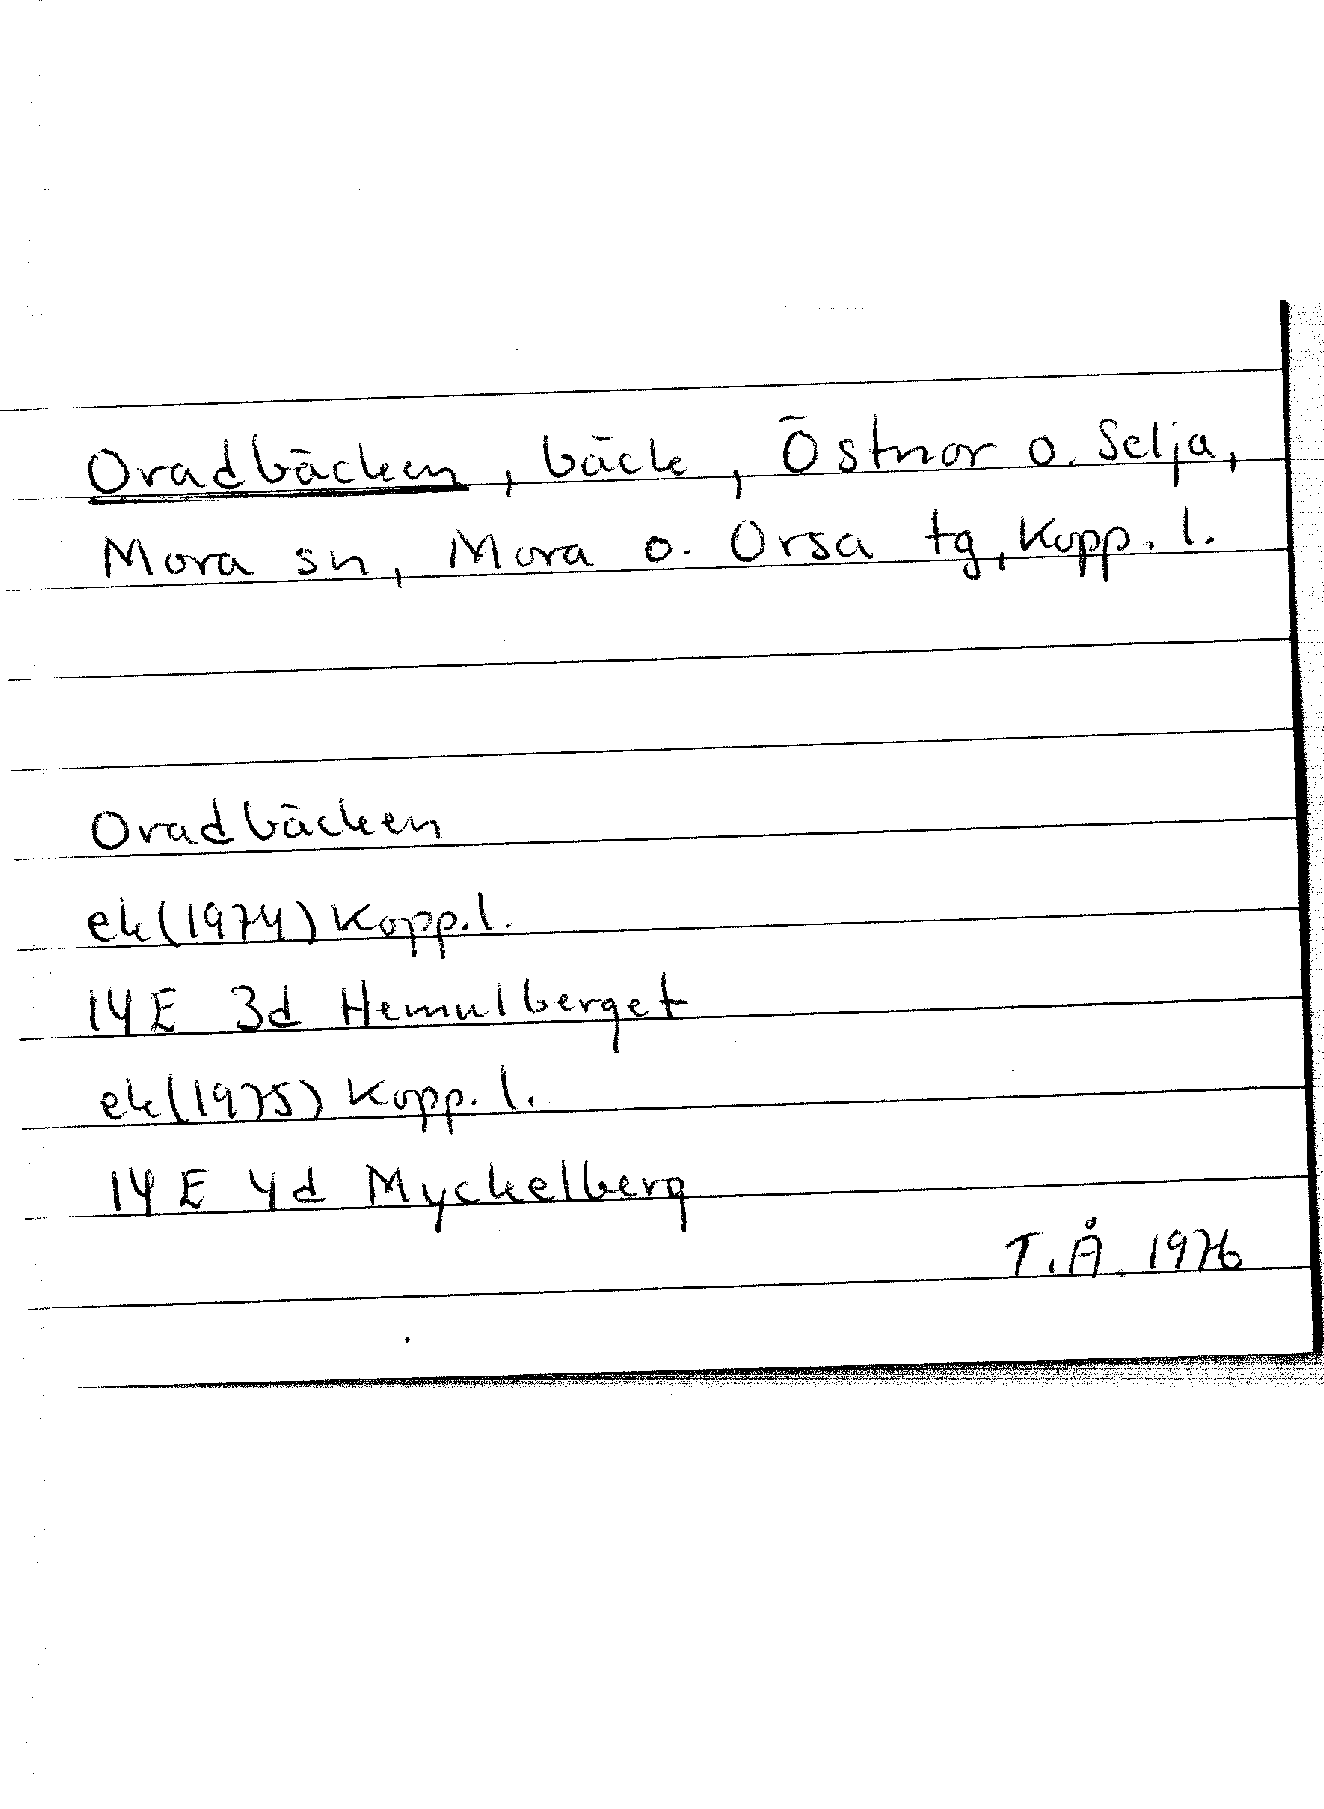 Oradbäcken, bäck, Östnor o. Selja,
Mora sn, Mora o. Orsa tg, Kopp. l.
Oradbäcken
ek (1974) Kopp. l.
14 E 3d Hemulberget
ek (1975) Kopp. l.
14 E 4d Myckelberg
T.Å. 1976